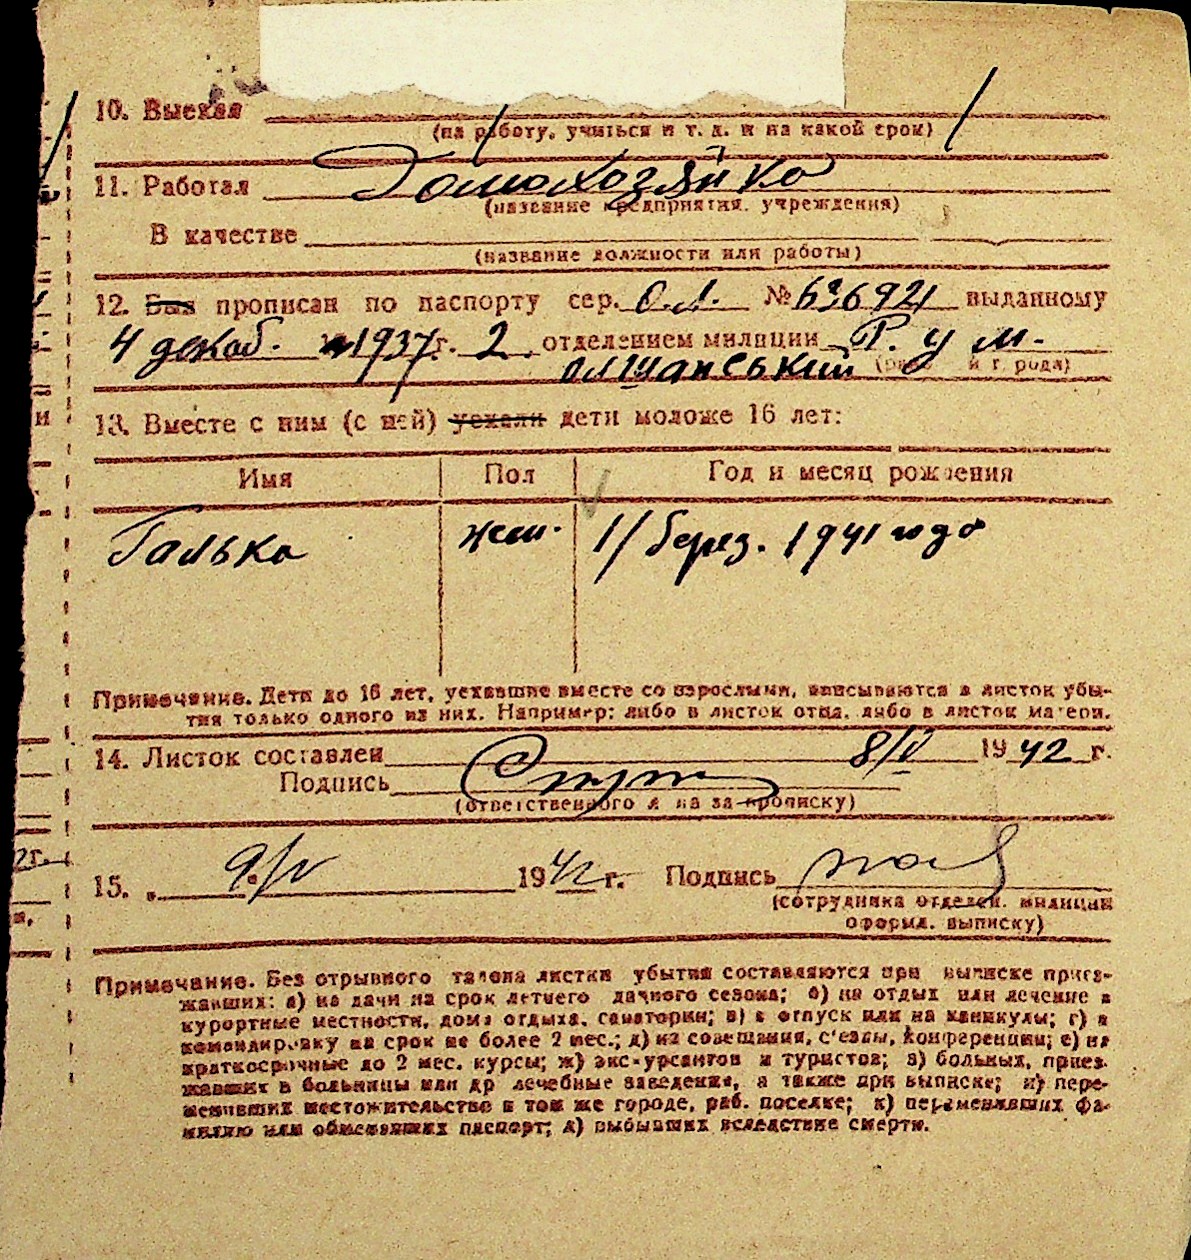 10. Выехал
(на работу, учиться и т. д. и на какой срок)
11. Работал Домохозяйка
(название предприятия, учреждения)
В качестве
(название должности или работы)
12. Был прописан по паспорту сер. О.Л. № 636921 выданному
4 декаб. 1937 г. 2 отделением милиции Р. у м.
олшанський (и г. рода)
13. Вместе с ним (с ней) уехали дети моложе 16 лет:
Имя Пол Год и месяц рождения
Галька жен. 1/берез. 1941 года
Примечание. Дети до 16 лет, уехавшие вместе со взрослыми, вписываются в листок убы-
тия только одного из них. Например: либо в листок отца, либо в листок матери.
14. Листок составлен 8/V 1942 г.
Подпись
(ответственного л на за прописку)
15. „ 9/V 1942 г. Подпись
(сотрудника отделен. милиции
оформл. выписку)
Примечание. Без отрывного талона листки убытия составляются при выписке приез-
жавших: а) на дачи на срок летнего дачного сезона; б) на отдых или лечение в
курортные местности, дома отдыха, санатории; в) в отпуск или на каникулы; г) в
командировку на срок не более 2 мес.; д) на совещания, с'езды, конференции; е) на
краткосрочные до 2 мес. курсы; ж) экскурсантов и туристов; з) больных, приез-
жавших в больницы или др лечебные заведения, а также при выписке; и) пере-
менивших местожительство в том же городе, раб. поселке; к) переменивших фа-
милию или обменявших паспорт; л) выбывших вследствие смерти.